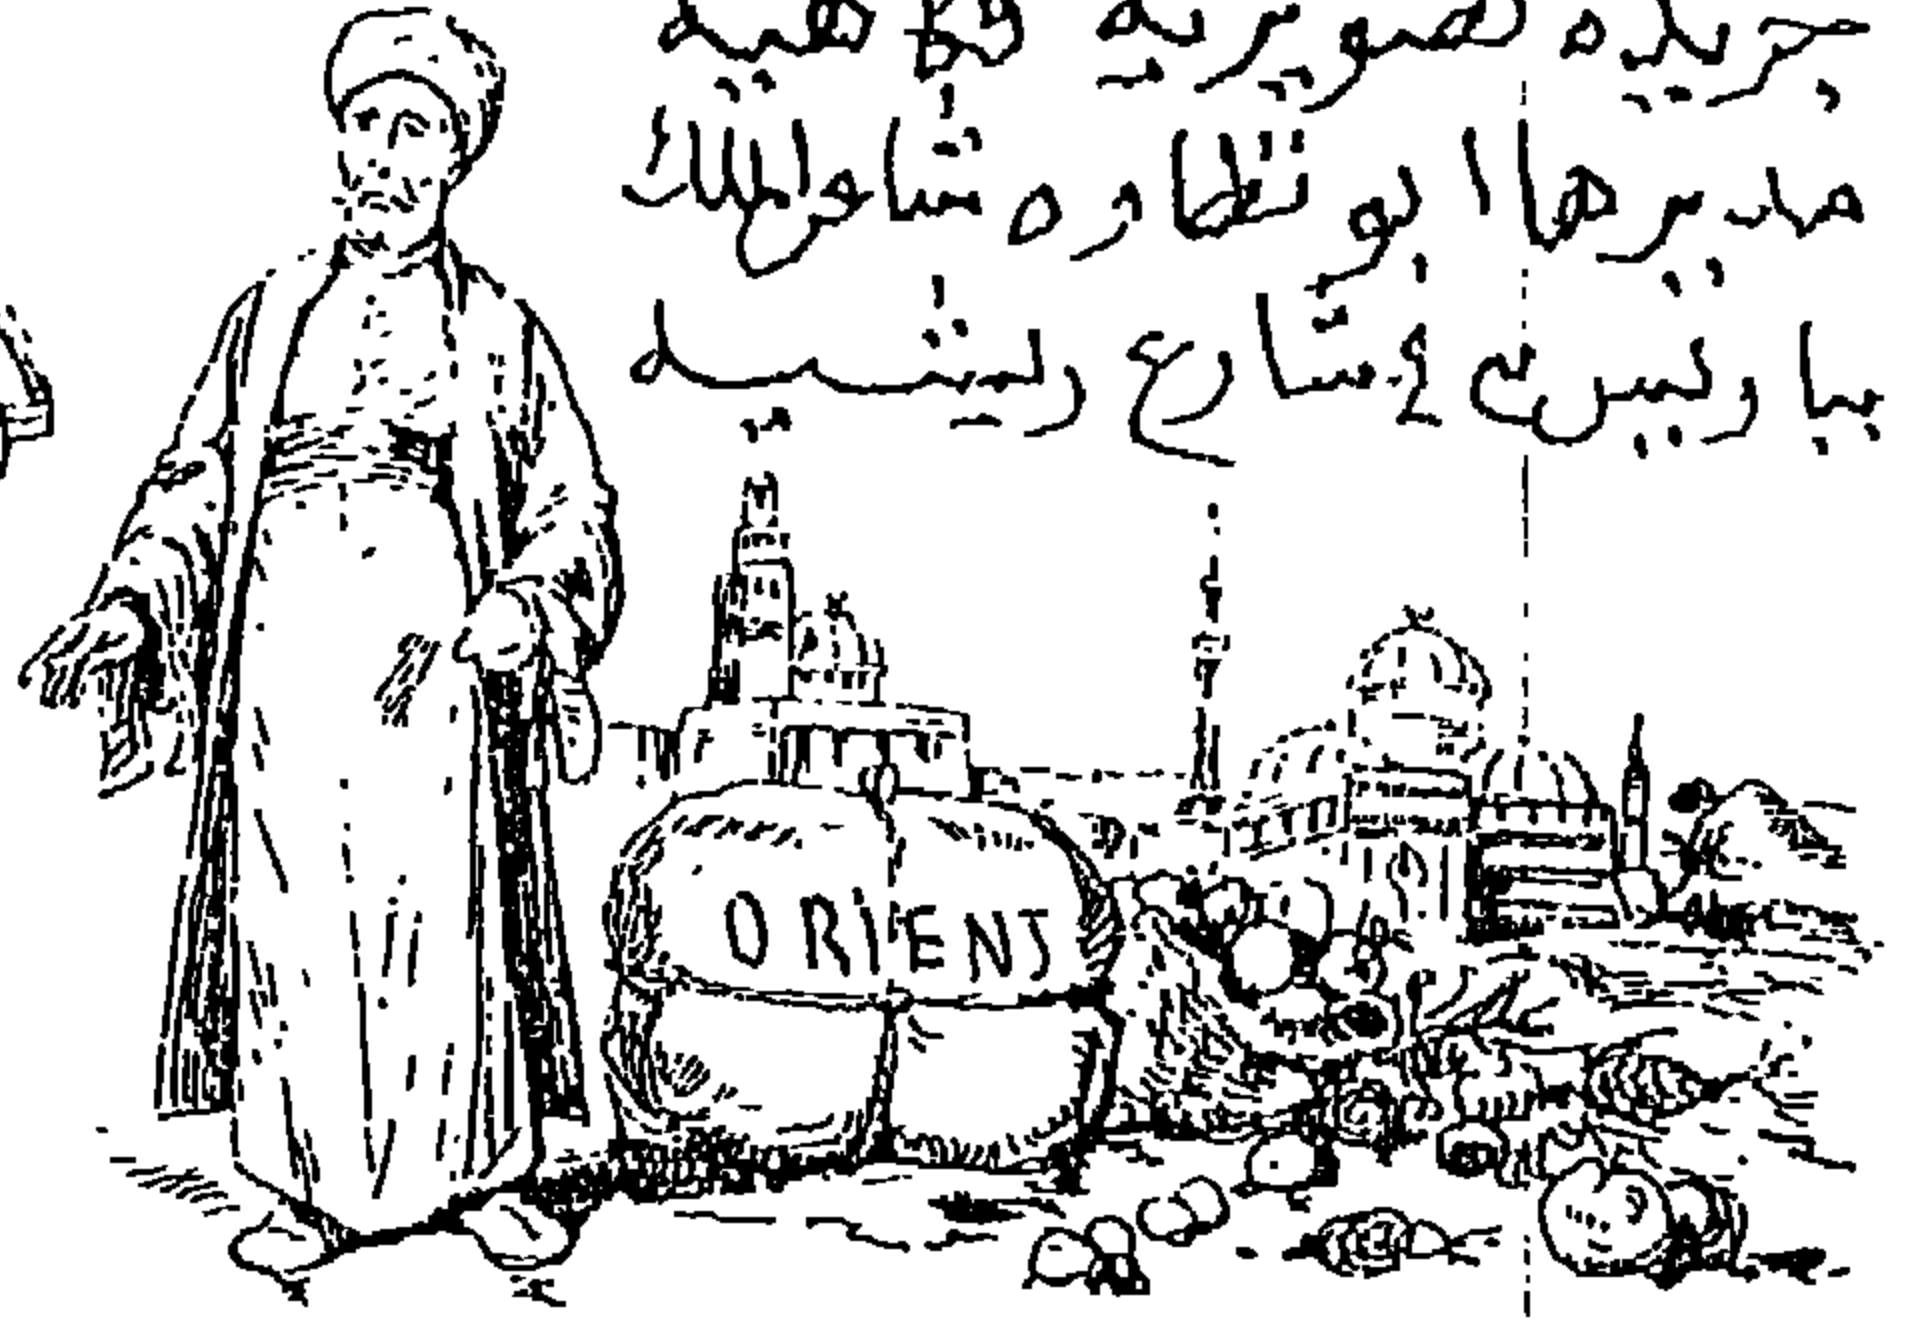 جريده تصويريه فكاهيه
مديرها ابو نظاره شاعر الملك
بباريس في ٤ شارع ريشيه
ORIENT